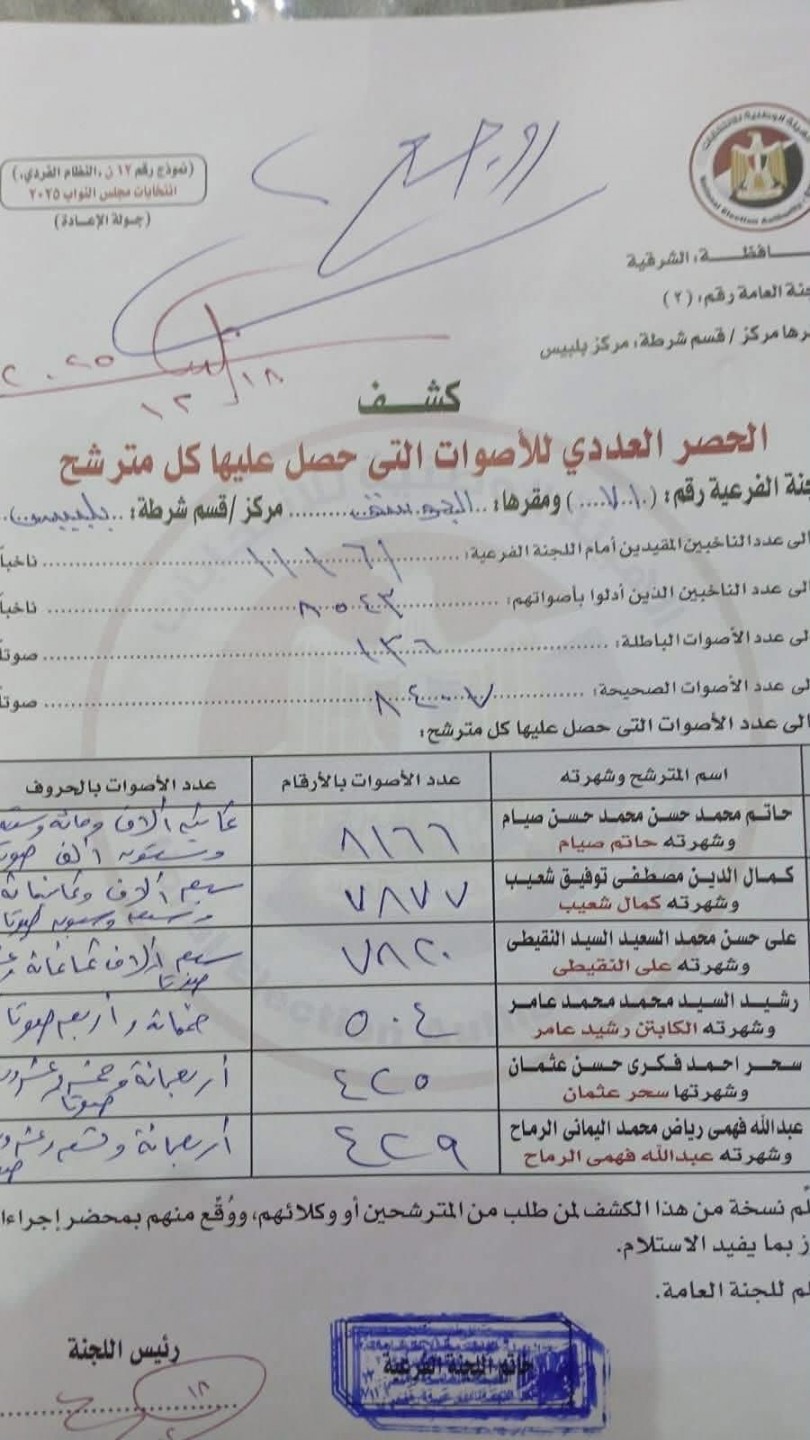 (نموذج رقم ١٢ ن، النظام الفردي،)
انتخابات مجلس النواب ٢٠٢٥
(جولة الإعادة)
National Election Authority
ـافظـــة، الشرقية
جنة العامة رقم، (٢)
رها مركز / قسم شرطة، مركز بلبيس
١٨
١٢
٢٠٢٥
كشف
الحصر العددي للأصوات التى حصل عليها كل مترشح
جنة الفرعية رقم: (٧١) ومقرها: مركز/قسم شرطة: بلبيس
الى عدد الناخبين المقيدين أمام اللجنة الفرعية: ١١١٦١ ناخباً
الى عدد الناخبين الذين أدلوا بأصواتهم: ٨٥٤٣ ناخباً
لى عدد الأصوات الباطلة: ١٣٦ صوتاً
ى عدد الأصوات الصحيحة: ٨٤٠٧ صوتاً
الى عدد الأصوات التى حصل عليها كل مترشح:
اسم المترشح وشهرته عدد الأصوات بالأرقام عدد الأصوات بالحروف
حاتم محمد حسن محمد حسن صيام
وشهرته حاتم صيام
٨١٦٦
ثمانية ألاف ومائة وستة
وستون ألف صوت
كمال الدين مصطفى توفيق شعيب
وشهرته كمال شعيب
٧٨٧٧
سبعة ألاف وثمانمائة
وسبعة وسبعون صوتا
على حسن محمد السعيد السيد النقيطى
وشهرته على النقيطى
٧٨٢٠
سبعة ألاف ثمانمائة
صوتا
رشيد السيد محمد محمد عامر
وشهرته الكابتن رشيد عامر
٥٠٤
خمسمائة وأربعة صوتا
سحر احمد فكرى حسن عثمان
وشهرتها سحر عثمان
٤٢٥
أربعمائة وخمسة وعشرون
صوتا
عبدالله فهمى رياض محمد اليمانى الرماح
وشهرته عبدالله فهمى الرماح
٤٢٩
أربعمائة وتسعة وعشرو
لّم نسخة من هذا الكشف لمن طلب من المترشحين أو وكلائهم، ووُقّع منهم بمحضر إجراءا
ز بما يفيد الاستلام.
لم للجنة العامة.
رئيس اللجنة
خاتم اللجنة الفرعية